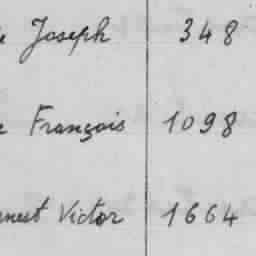 Joseph 348
François 1098
Victor 1664